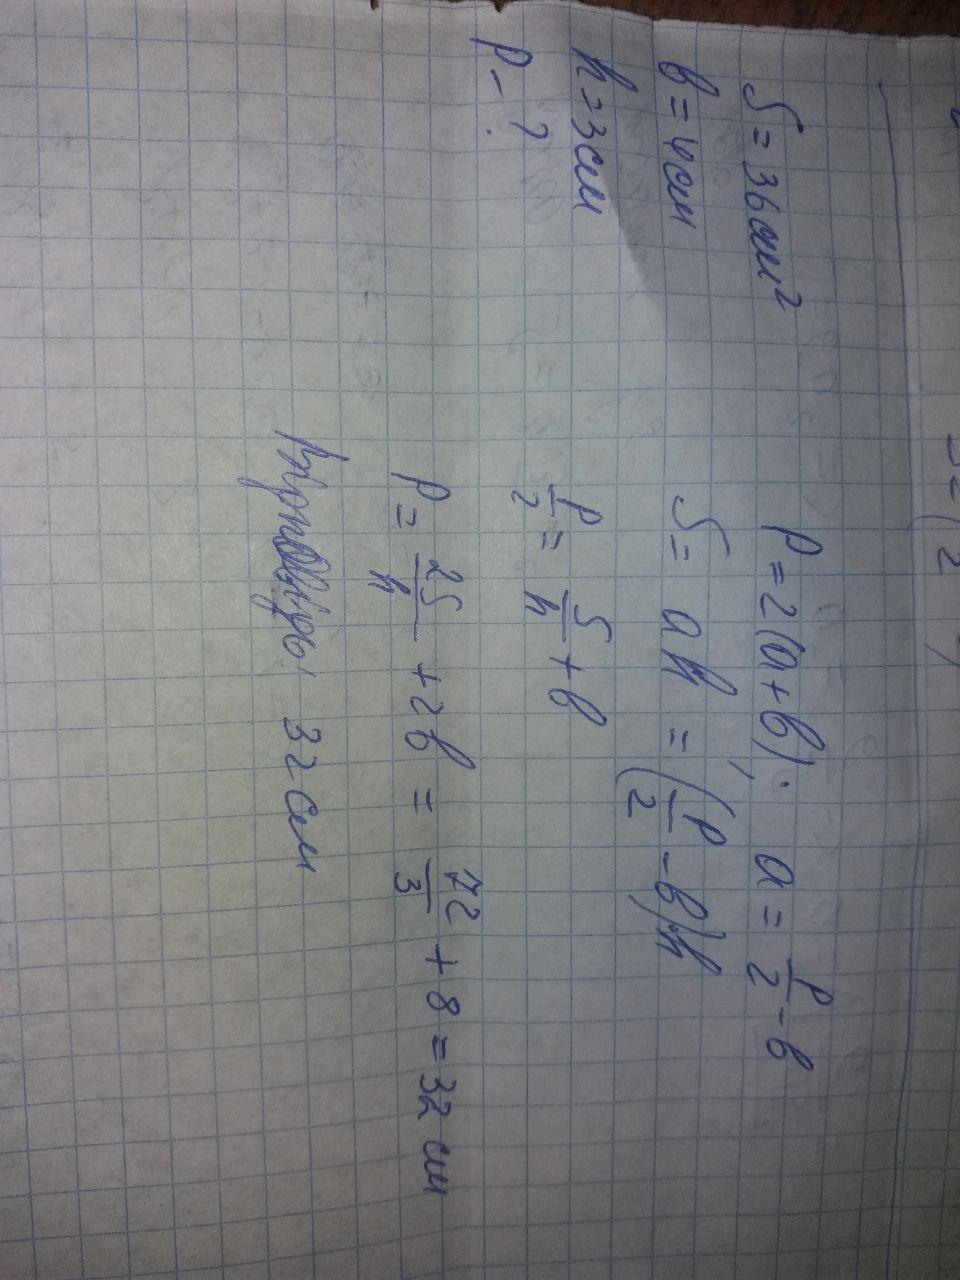 S = 36 см²
в = 4 см
h = 3 см
P - ?
P = 2(a+в); a = P/2 - в
S = ah = (P/2 - в)h
P/2 = S/h + в
P = 2S/h + 2в = 72/3 + 8 = 32 см
32 см